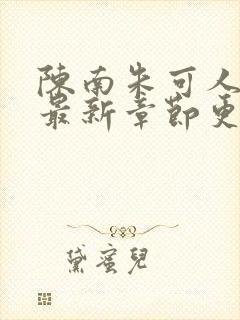 陳南朱可人
最新章節更
黛蜜兒